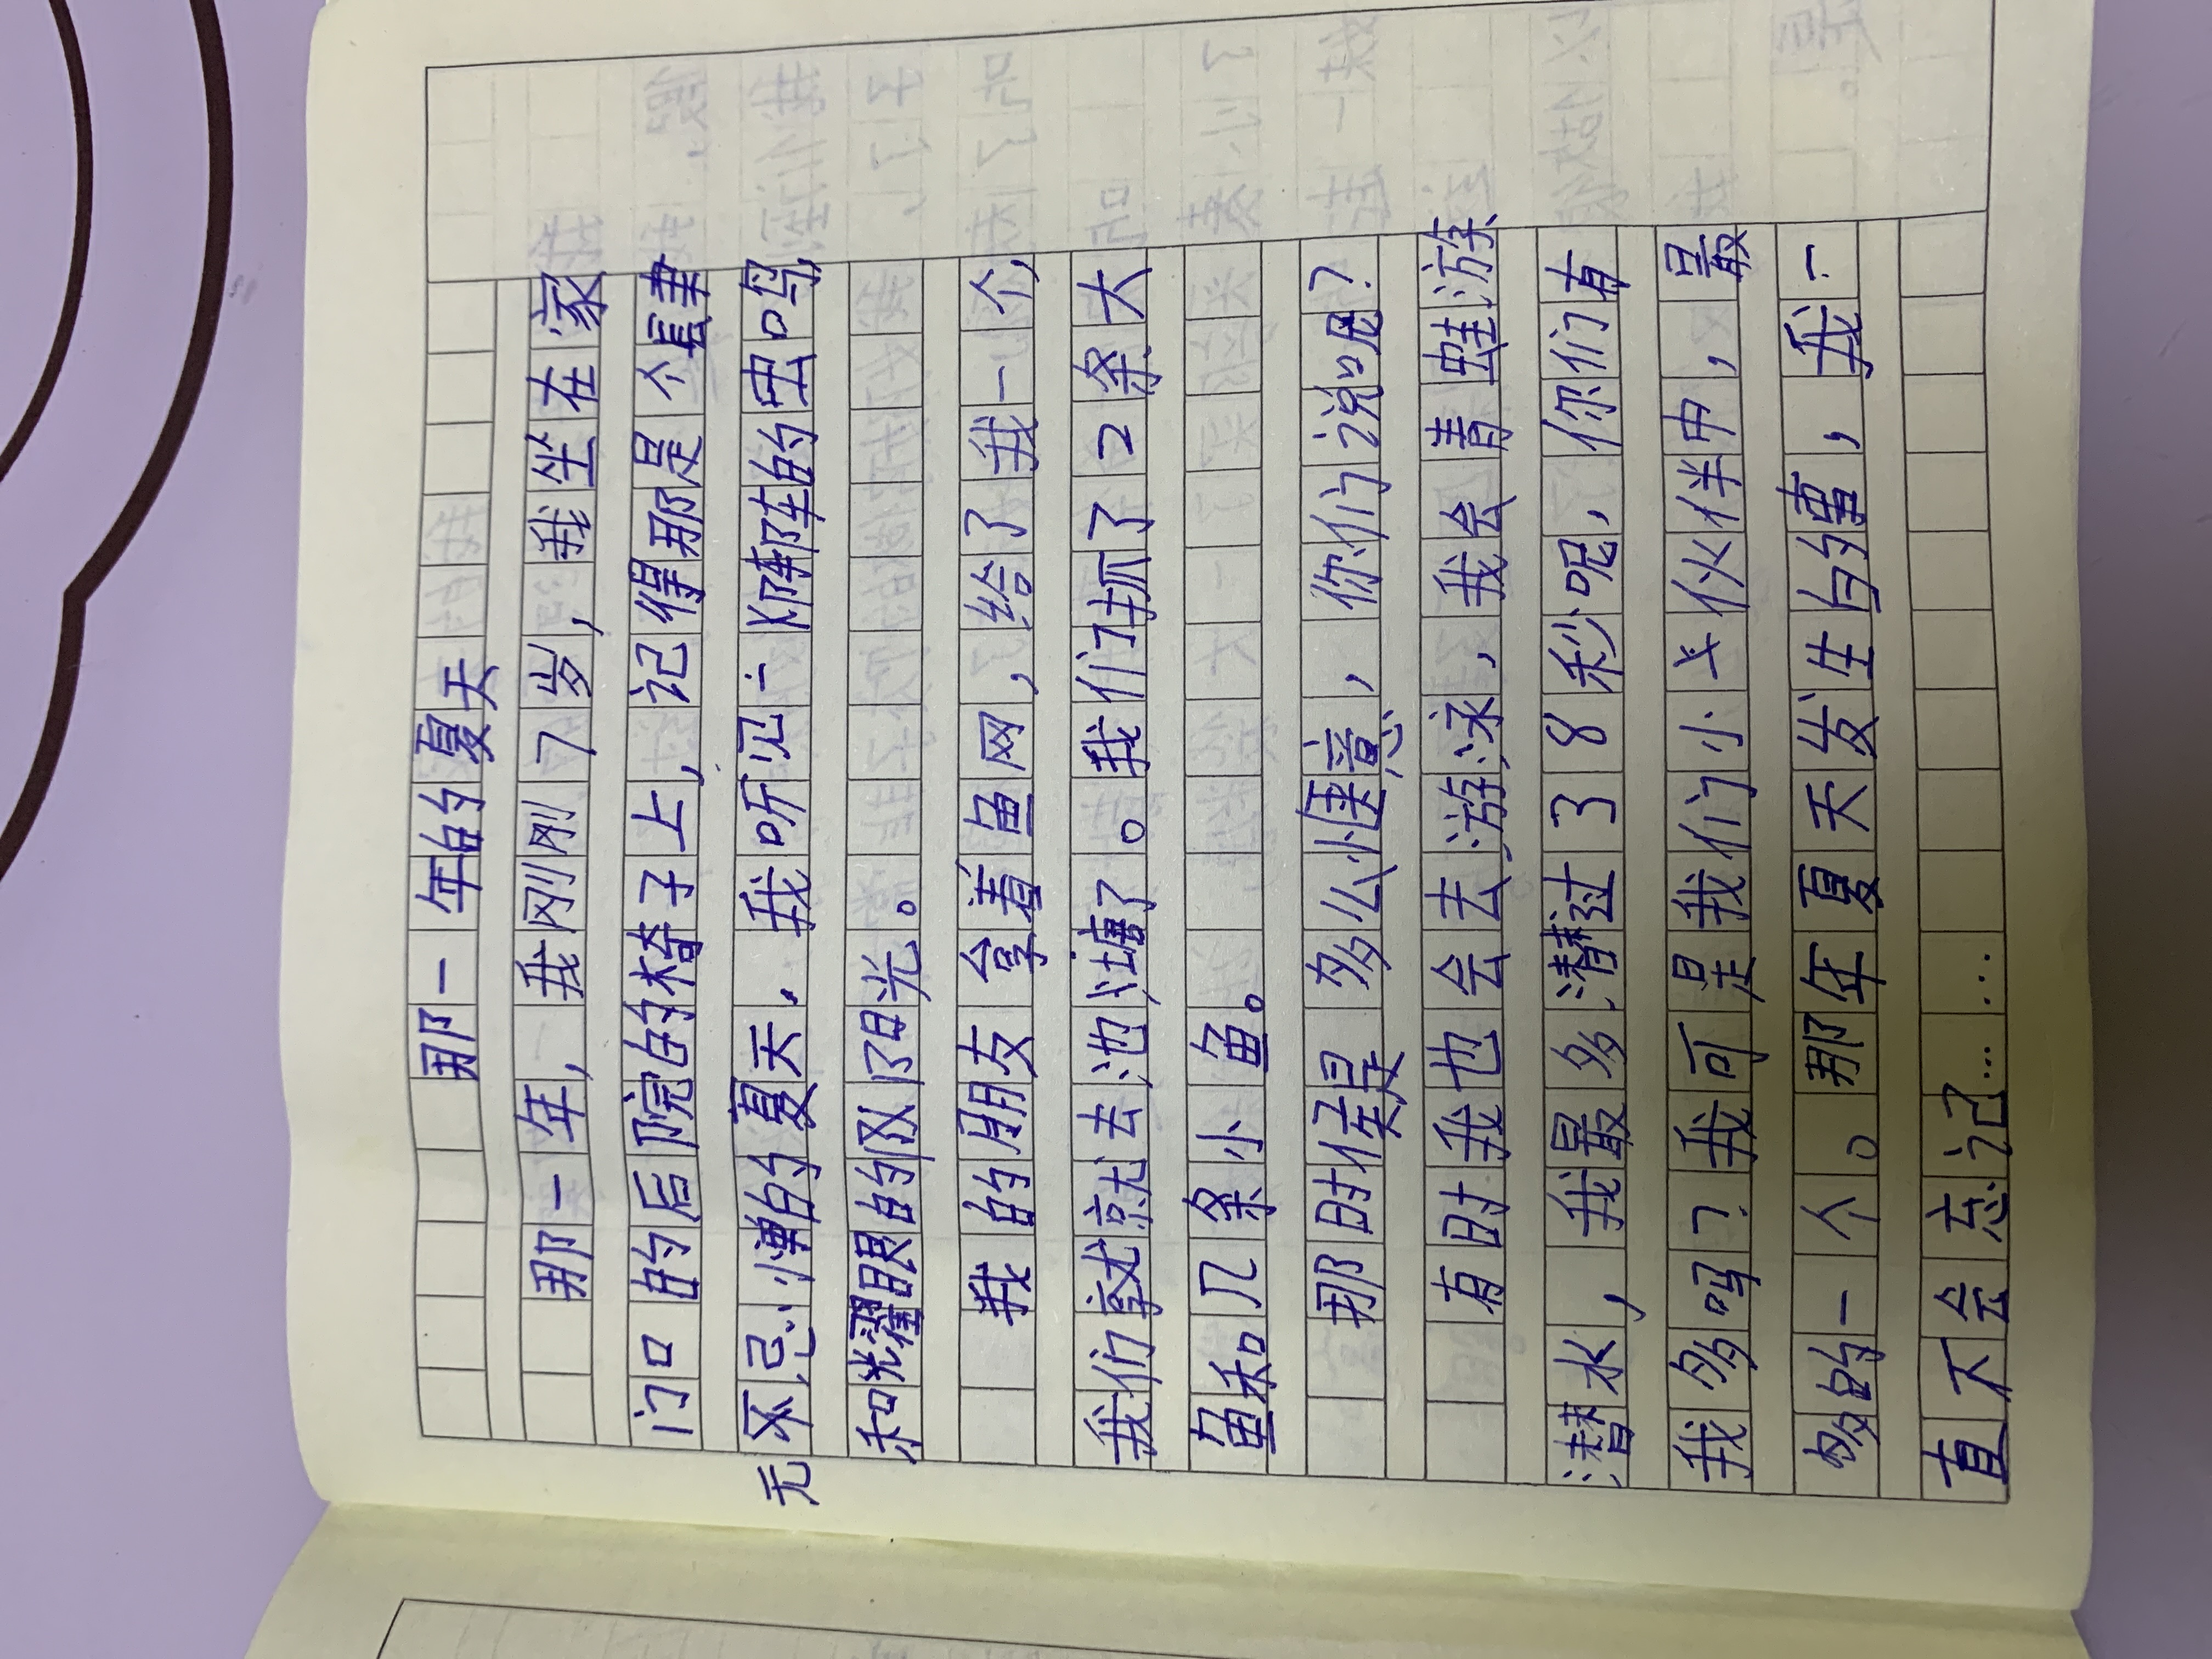 那一年的夏天
那一年，我刚刚7岁，我坐在家
门口的后院的椅子上，记得那是个
无忧的夏天，我听见一阵阵的虫鸣
和光耀眼的阳光。
我的朋友拿着鱼网，给了我一个，
我们就去池塘了。我们抓了2条大
鱼和几条小鱼。
那时候是多么惬意，你们说呢？
有时我也会去游泳，我会青蛙游泳
潜水，我最多潜过38秒呢，你们有
我多吗？我可是我们小伙伴中，最
多的一个。那年夏天发生的事，我一
直不会忘记……